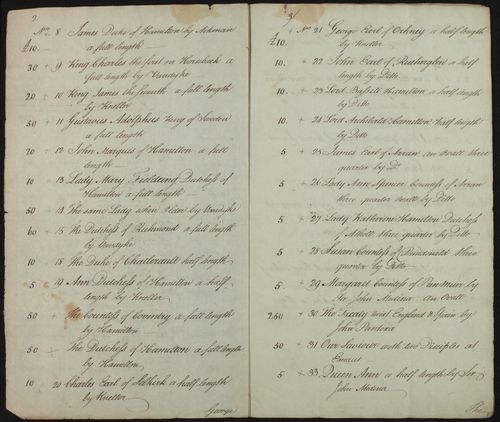 2
No 8 James Duke of Hamilton by Aikman
£10. a full length
30 + 9 King Charles the first on Horseback a
full length by Vandyke
20 + 10 King James the Seventh a full length
by Kneller
50 + 11 Gustavus Adolphus King of Sweden
a full length
20 + 12 John Marquis of Hamilton a full
length
10 + 13 Lady Mary Feilding Dutchess of
Hamilton a full length
50 + 14 The same Lady when by Vandyke
60 + 15 The Dutchess of Richmond a full length
by Vandyke
10 18 The Duke of Chatlerault half length
5 + 19 Ann Dutchess of Hamilton a half
length by Kneller
50 + The Countess of Coventry a full length
by Hamilton
50 + The Dutchess of Hamilton a full length
by Hamilton
10 + 20 Charles Earl of Selkirk a half length
by Kneller
George
3
No 21 George Earl of Orkney a half length
£10. by Kneller
10. + 22 John Earl of Rutherglen a half
length by Ditto
10. + 23 Lord Basill Hamilton a half
length by Ditto
10. + 24 Lord Archibald Hamilton half length
by Ditto
5 + 25 James Earl of Arran an Ovall three
quarter by Do
5 + 26 Lady Ann Spencer Countess of Arran
three quarter Ovall by Ditto
5 + 27 Lady Katherine Hamilton Dutchess
of Atholl three quarter by Ditto
5 + 28 Susan Countess of Dundonald three
quarter by Ditto
5 + 29 Margaret Countess of Panmuir by
Sir John Medina an Ovall
250 + 30 The Treaty twixt England & Spain by
John
50 + 31 Our Saviour with two Disciples at
Emaus
5 + 33 Queen Ann a half length by Sir
John Medina
The